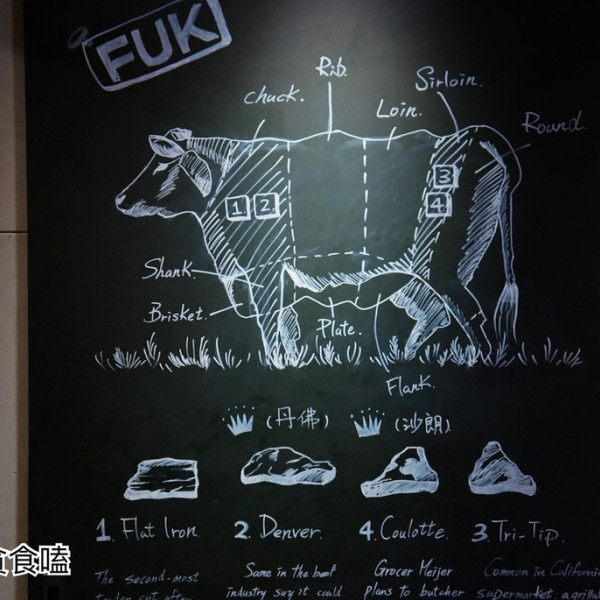 FUK
Rib.
Chuck.
Sirloin.
Loin.
Round.
1 2
3
4
Shank.
Brisket.
Plate.
Flank.
(丹佛) (沙朗)
1. Flat Iron. 2. Denver. 4. Coulotte. 3. Tri-Tip.
The second-most Some in the beef Grocer Meijer Common in Californi
industry say it could plans to butcher supermarket, a grilla
食嗑